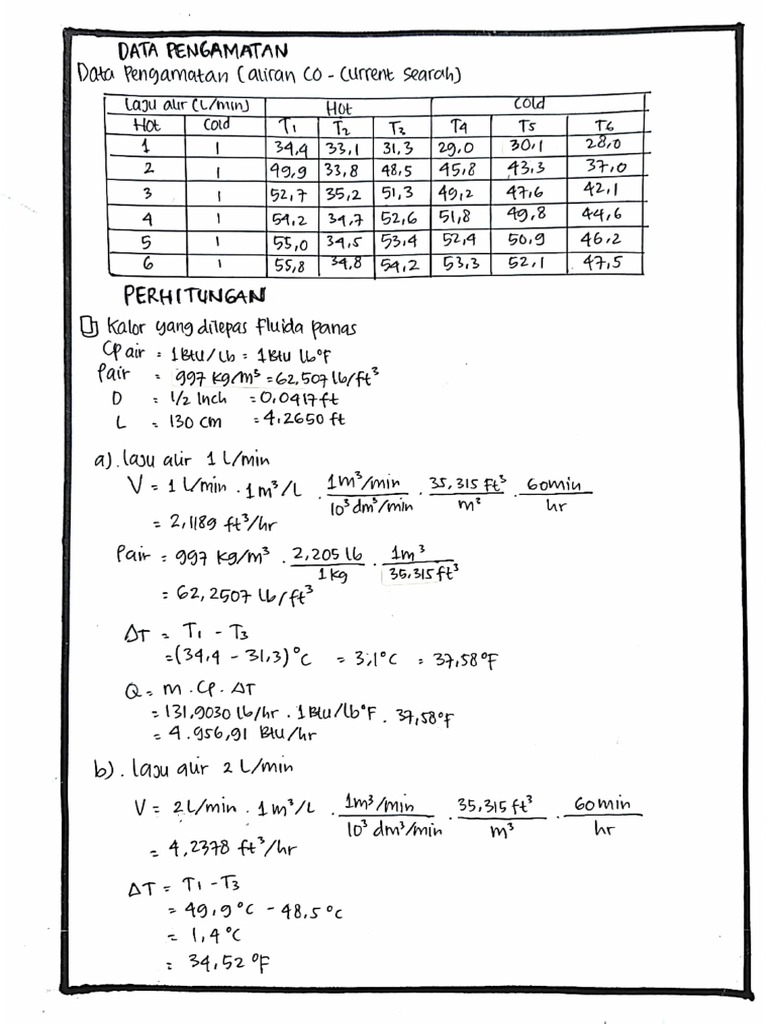 DATA PENGAMATAN
Data Pengamatan (aliran co-current searah)
Laju alir (L/min) Hot Cold
Hot Cold T1 T2 T3 T4 T5 T6
1 1 34,4 33,1 31,3 29,0 30,1 28,0
2 1 49,9 33,8 48,5 45,8 43,3 37,0
3 1 52,7 35,2 51,3 49,2 47,6 42,1
4 1 54,2 34,7 52,6 51,8 49,8 44,6
5 1 55,0 34,5 53,4 52,4 50,9 46,2
6 1 55,8 34,8 54,2 53,3 52,1 47,5
PERHITUNGAN
1) Kalor yang dilepas fluida panas
Cp air = 1 Btu/lb = 1 Btu lb°F
ρair = 997 kg/m³ = 62,507 lb/ft³
D = 1/2 Inch = 0,0417 ft
L = 130 cm = 4,2650 ft
a). laju alir 1 L/min
V = 1 L/min . 1 m³/L . 1 m³/min / 10³ dm³/min . 35,315 ft³ / m³ . 60 min / hr
= 2,1189 ft³/hr
ρair = 997 kg/m³ . 2,205 lb / 1 kg . 1 m³ / 35,315 ft³
= 62,2507 lb/ft³
ΔT = T1 - T3
= (34,4 - 31,3)°C = 3,1°C = 37,58°F
Q = m . Cp . ΔT
= 131,9030 lb/hr . 1 Btu/lb°F . 37,58°F
= 4.956,91 Btu/hr
b). laju alir 2 L/min
V = 2 L/min . 1 m³/L . 1 m³/min / 10³ dm³/min . 35,315 ft³ / m³ . 60 min / hr
= 4,2378 ft³/hr
ΔT = T1 - T3
= 49,9°C - 48,5°C
= 1,4°C
= 34,52°F